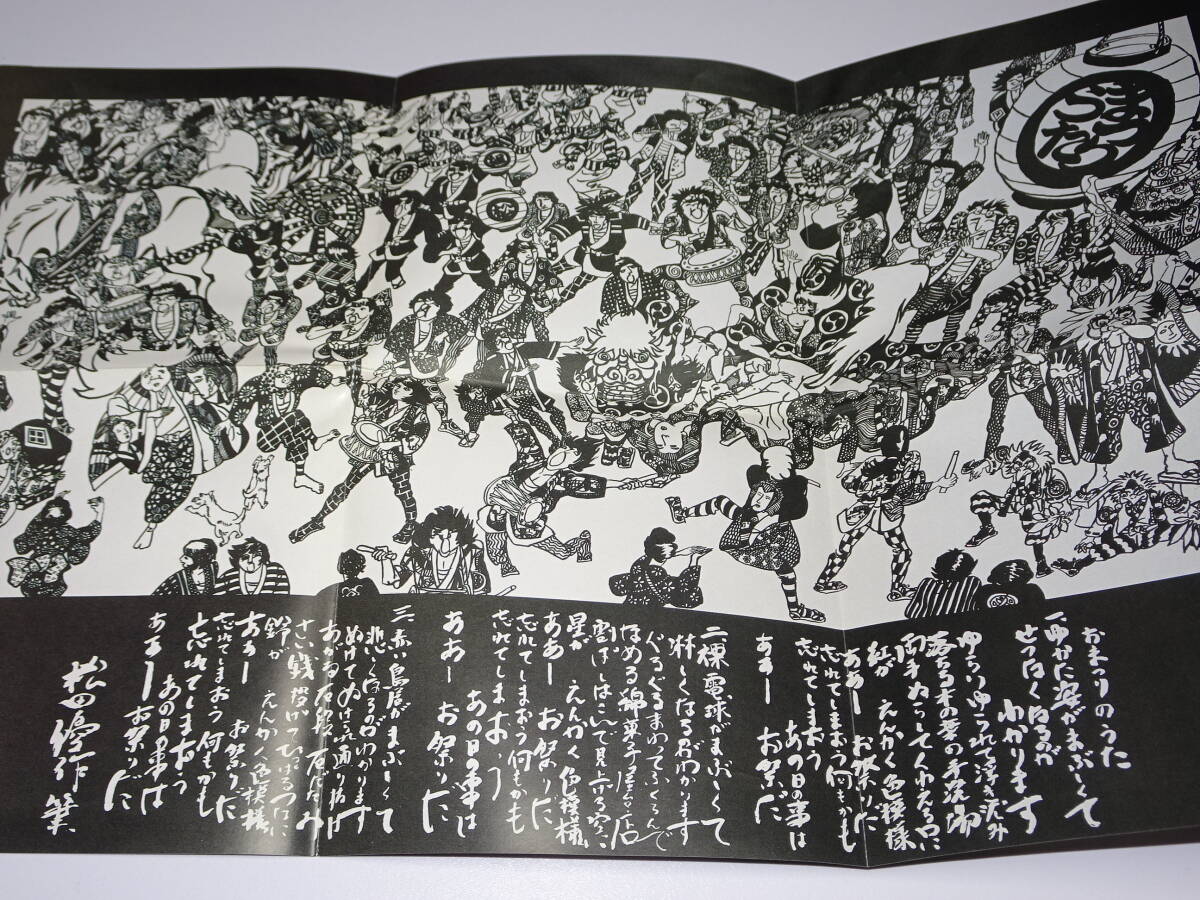 おまつりのうた
一、ゆかた姿がまぶしくて
せつなくなるのが
わかります
ゆらりゆられて浮き沈み
落ちる木の葉の
両手ぬらしてくわえる口に
紅が えんかく色模様
ああー お祭りだ
忘れてしまおう何もかも
忘れてしまおう
あの日の事は
ああー お祭りだ
二、裸電球がまぶしくて
淋しくなるのがわかります
ぐるぐるまわってふくらんで
ほめる綿菓子屋台店
見上る空に
星が えんかく色模様
ああー お祭りだ
忘れてしまおう何もかも
忘れてしまおう
あの日の事は
ああー お祭りだ
三、赤い鳥居がまぶしくて
悲しくなるのがわかります
ぬけてぬけられ通り抜け
あがる石段 石だたみ
さい銭投げつ ひっぱるつなに
鈴が えんかく色模様
ああー お祭りだ
忘れてしまおう何もかも
忘れてしまおう
あの日の事は
ああー お祭りだ
松田優作 筆